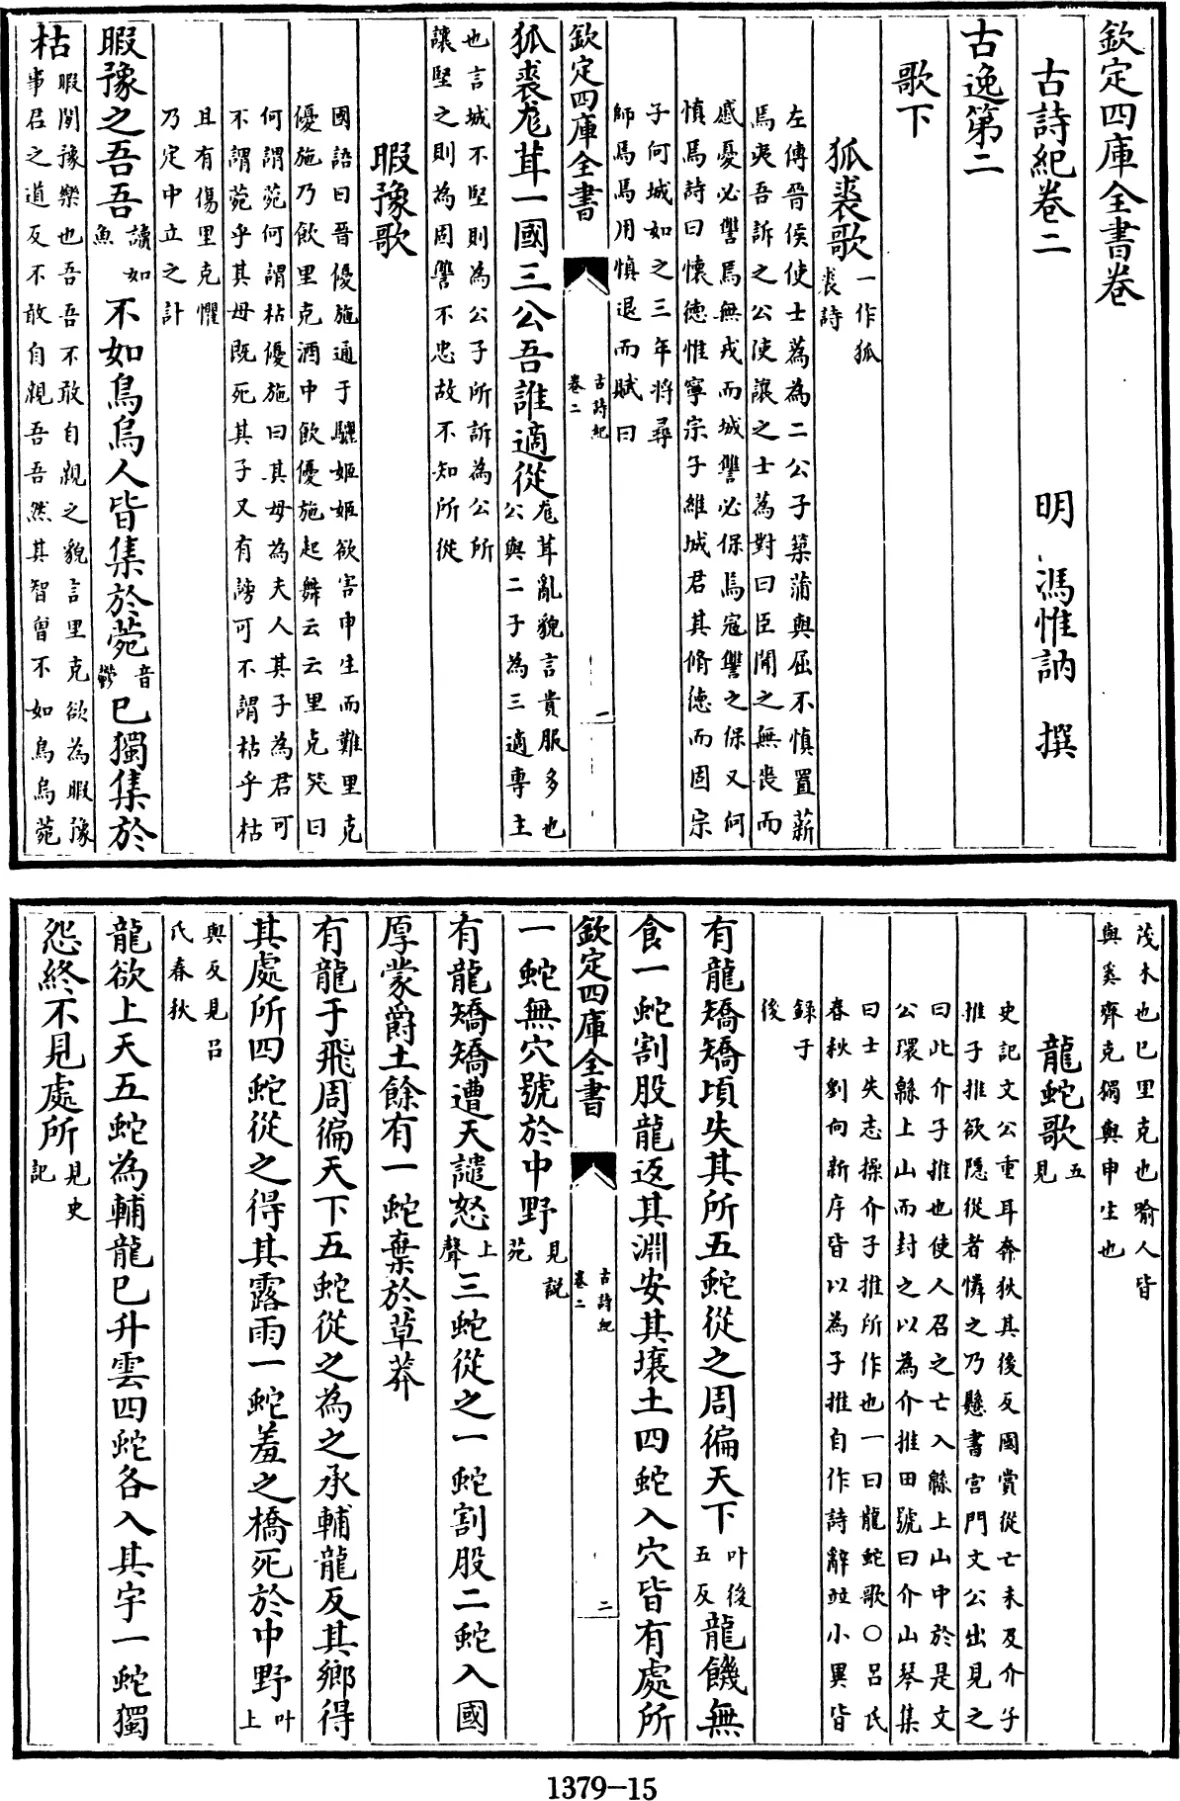 欽定四庫全書卷
古詩紀卷二 明 馮惟訥 撰
古逸第二
歌下
狐裘歌一作狐裘詩
左傳晉侯使士蒍為二公子築蒲與屈不慎置薪
焉夷吾訴之公使讓之士蒍對曰臣聞之無喪而
慼憂必讐焉無戎而城讐必保焉寇讐之保又何
慎焉詩曰懷德惟寧宗子維城君其脩德而固宗
子何城如之三年將尋
師焉焉用慎退而賦曰
欽定四庫全書 古詩紀 卷二 一
狐裘尨茸一國三公吾誰適從尨茸亂貌言貴服多也公與二子為三適專主
也言城不堅則為公子所訴為公所
讓堅之則為固讐不忠故不知所從
暇豫歌
國語曰晉優施通于驪姬姬欲害申生而難里克
優施乃飲里克酒中飲優施起舞云云里克笑曰
何謂菀何謂枯優施曰其母為夫人其子為君可
不謂菀乎其母既死其子又有謗可不謂枯乎枯
且有傷里克懼
乃定中立之計
暇豫之吾吾讀如魚不如鳥烏人皆集於菀音鬱已獨集於
枯暇閒豫樂也吾吾不敢自親之貌言里克欲為暇豫事君之道反不敢自親吾吾然其智曾不如鳥烏菀
茂木也已里克也喻人皆
與奚齊克獨與申生也
龍蛇歌五見
史記文公重耳奔狄其後反國賞從亡未及介子
推子推欲隱從者憐之乃懸書宮門文公出見之
曰此介子推也使人召之亡入緜上山中於是文
公環緜上山而封之以為介推田號曰介山琴集
曰士失志操介子推所作也一曰龍蛇歌○呂氏
春秋劉向新序皆以為子推自作詩辭竝小異皆
錄于
後
有龍矯矯頃失其所五蛇從之周徧天下叶後五反龍饑無
食一蛇割股龍返其淵安其壤土四蛇入穴皆有處所
欽定四庫全書 古詩紀 卷二 二
一蛇無穴號於中野見說苑
有龍矯矯遭天譴怒上聲三蛇從之一蛇割股二蛇入國
厚蒙爵土餘有一蛇棄於草莽
有龍于飛周徧天下五蛇從之為之承輔龍反其鄉得
其處所四蛇從之得其露雨一蛇羞之橋死於中野叶上
與反見呂
氏春秋
龍欲上天五蛇為輔龍已升雲四蛇各入其宇一蛇獨
怨終不見處所見史記
1379-15